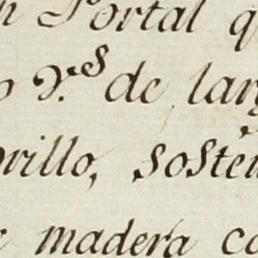 n Portal q
v.s de larg
villo, sosten
madera co